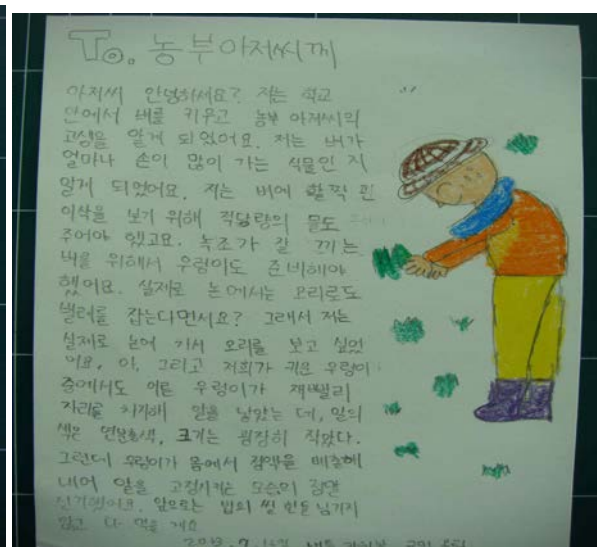 To. 농부아저씨께
아저씨 안녕하세요? 저는 학교
안에서 벼를 키우고 농부 아저씨의
고생을 알게 되었어요. 저는 벼가
얼마나 손이 많이 가는 식물인 지
알게 되었어요. 저는 벼에 활짝 핀
이삭을 보기 위해 적당량의 물도
주어야 했고요. 녹조가 잘 끼는
벼를 위해서 우렁이도 준비해야
했어요. 실제로 논에서는 오리로도
벌레를 잡는다면서요? 그래서 저는
실제로 논에 가서 오리를 보고 싶었
어요. 아, 그리고 저희가 키운 우렁이
중에서도 어른 우렁이가 재빨리
자리를 차지해 알을 낳았는 데, 알의
색은 연분홍색, 크기는 굉장히 작았다.
그런데 우렁이가 몸에서 점액을 배출해
내어 알을 고정시키는 모습이 정말
신기했어요. 앞으로는 밥의 씰 한톨 남기지
않고 다 먹을 게요
2013. 7.